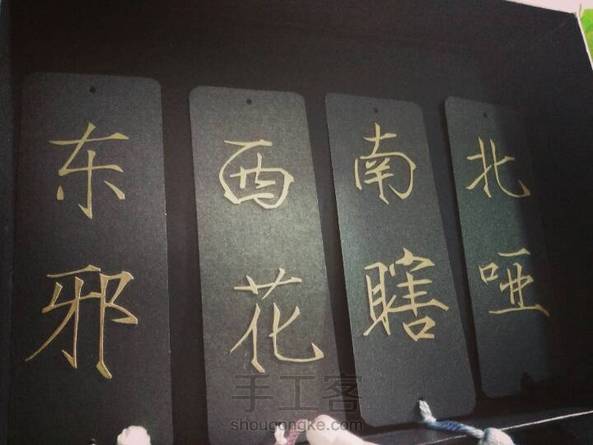 东邪
西花
南瞎
北哑
手工客
shougongke.com